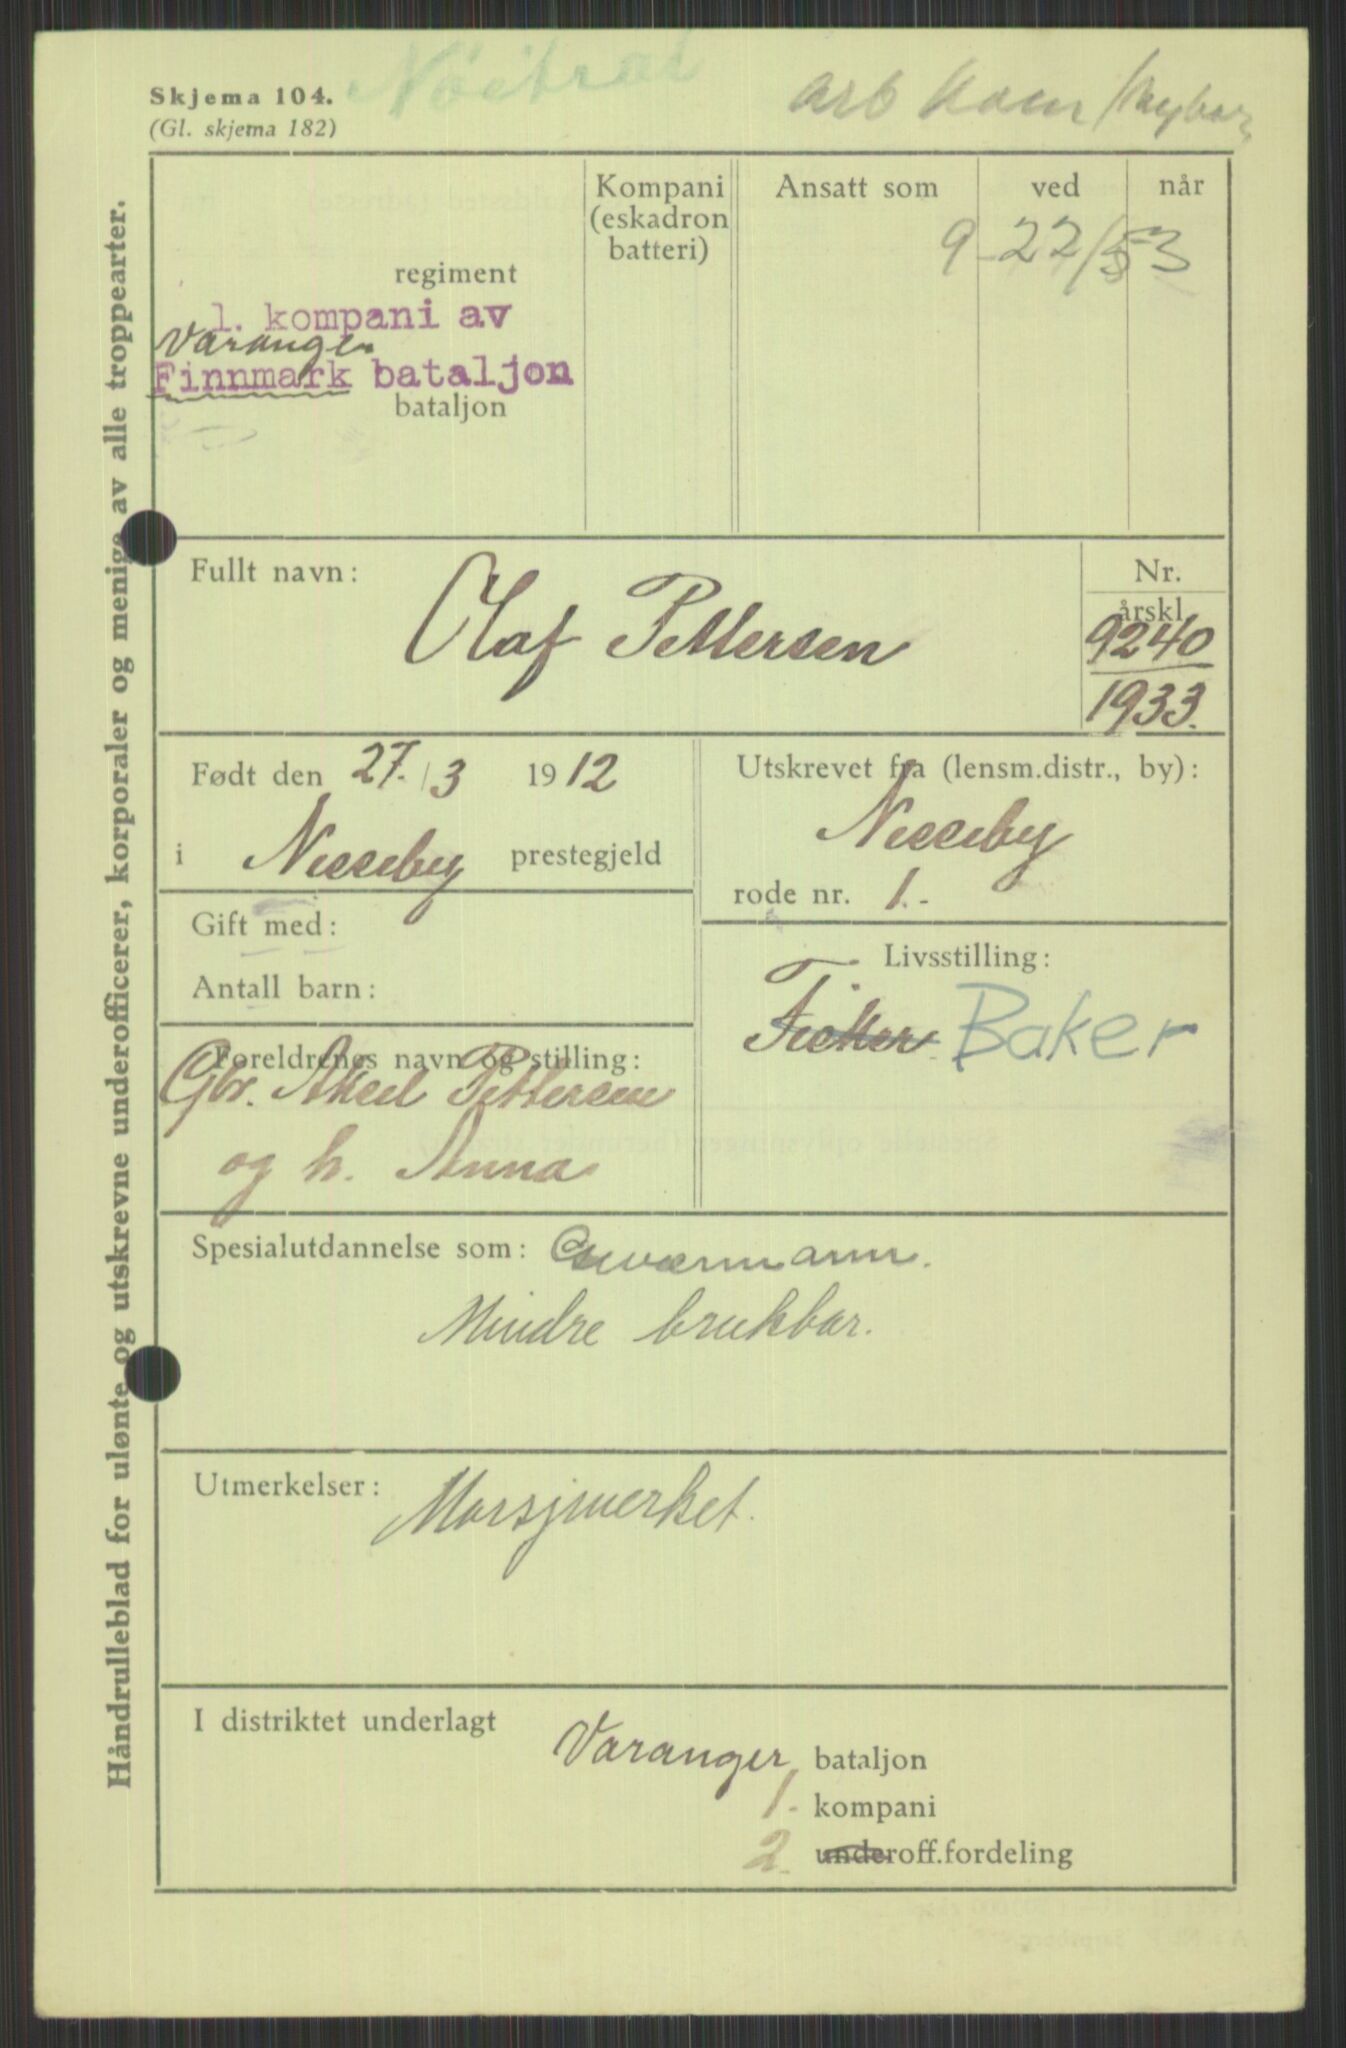 Skjema 104.
(Gl. skjema 182)
Nöitral
arb kom / Nybor
Håndrulleblad for ulønte og utskrevne underofficerer, korporaler og menige av alle troppearter.
Kompani
(eskadron
batteri)
Ansatt som
ved
når
9-22/53
regiment
1. kompani av
Varanger
Finnmark bataljon
bataljon
Fullt navn: Olaf Pettersen
Nr.
årskl.
9240
1933.
Født den 27./3 1912
i Nesseby prestegjeld
Utskrevet fra (lensm.distr., by):
Nesseby
rode nr. 1.-
Gift med:
Antall barn:
Livsstilling:
Fisker Baker
Foreldrenes navn og stilling:
Gbr. Aksel Pettersen
og h. Anna
Spesialutdannelse som: Geværmann.
Mindre brukbar.
Utmerkelser: Marsjmerket.
I distriktet underlagt
Varanger bataljon
1. kompani
2. underoff.fordeling